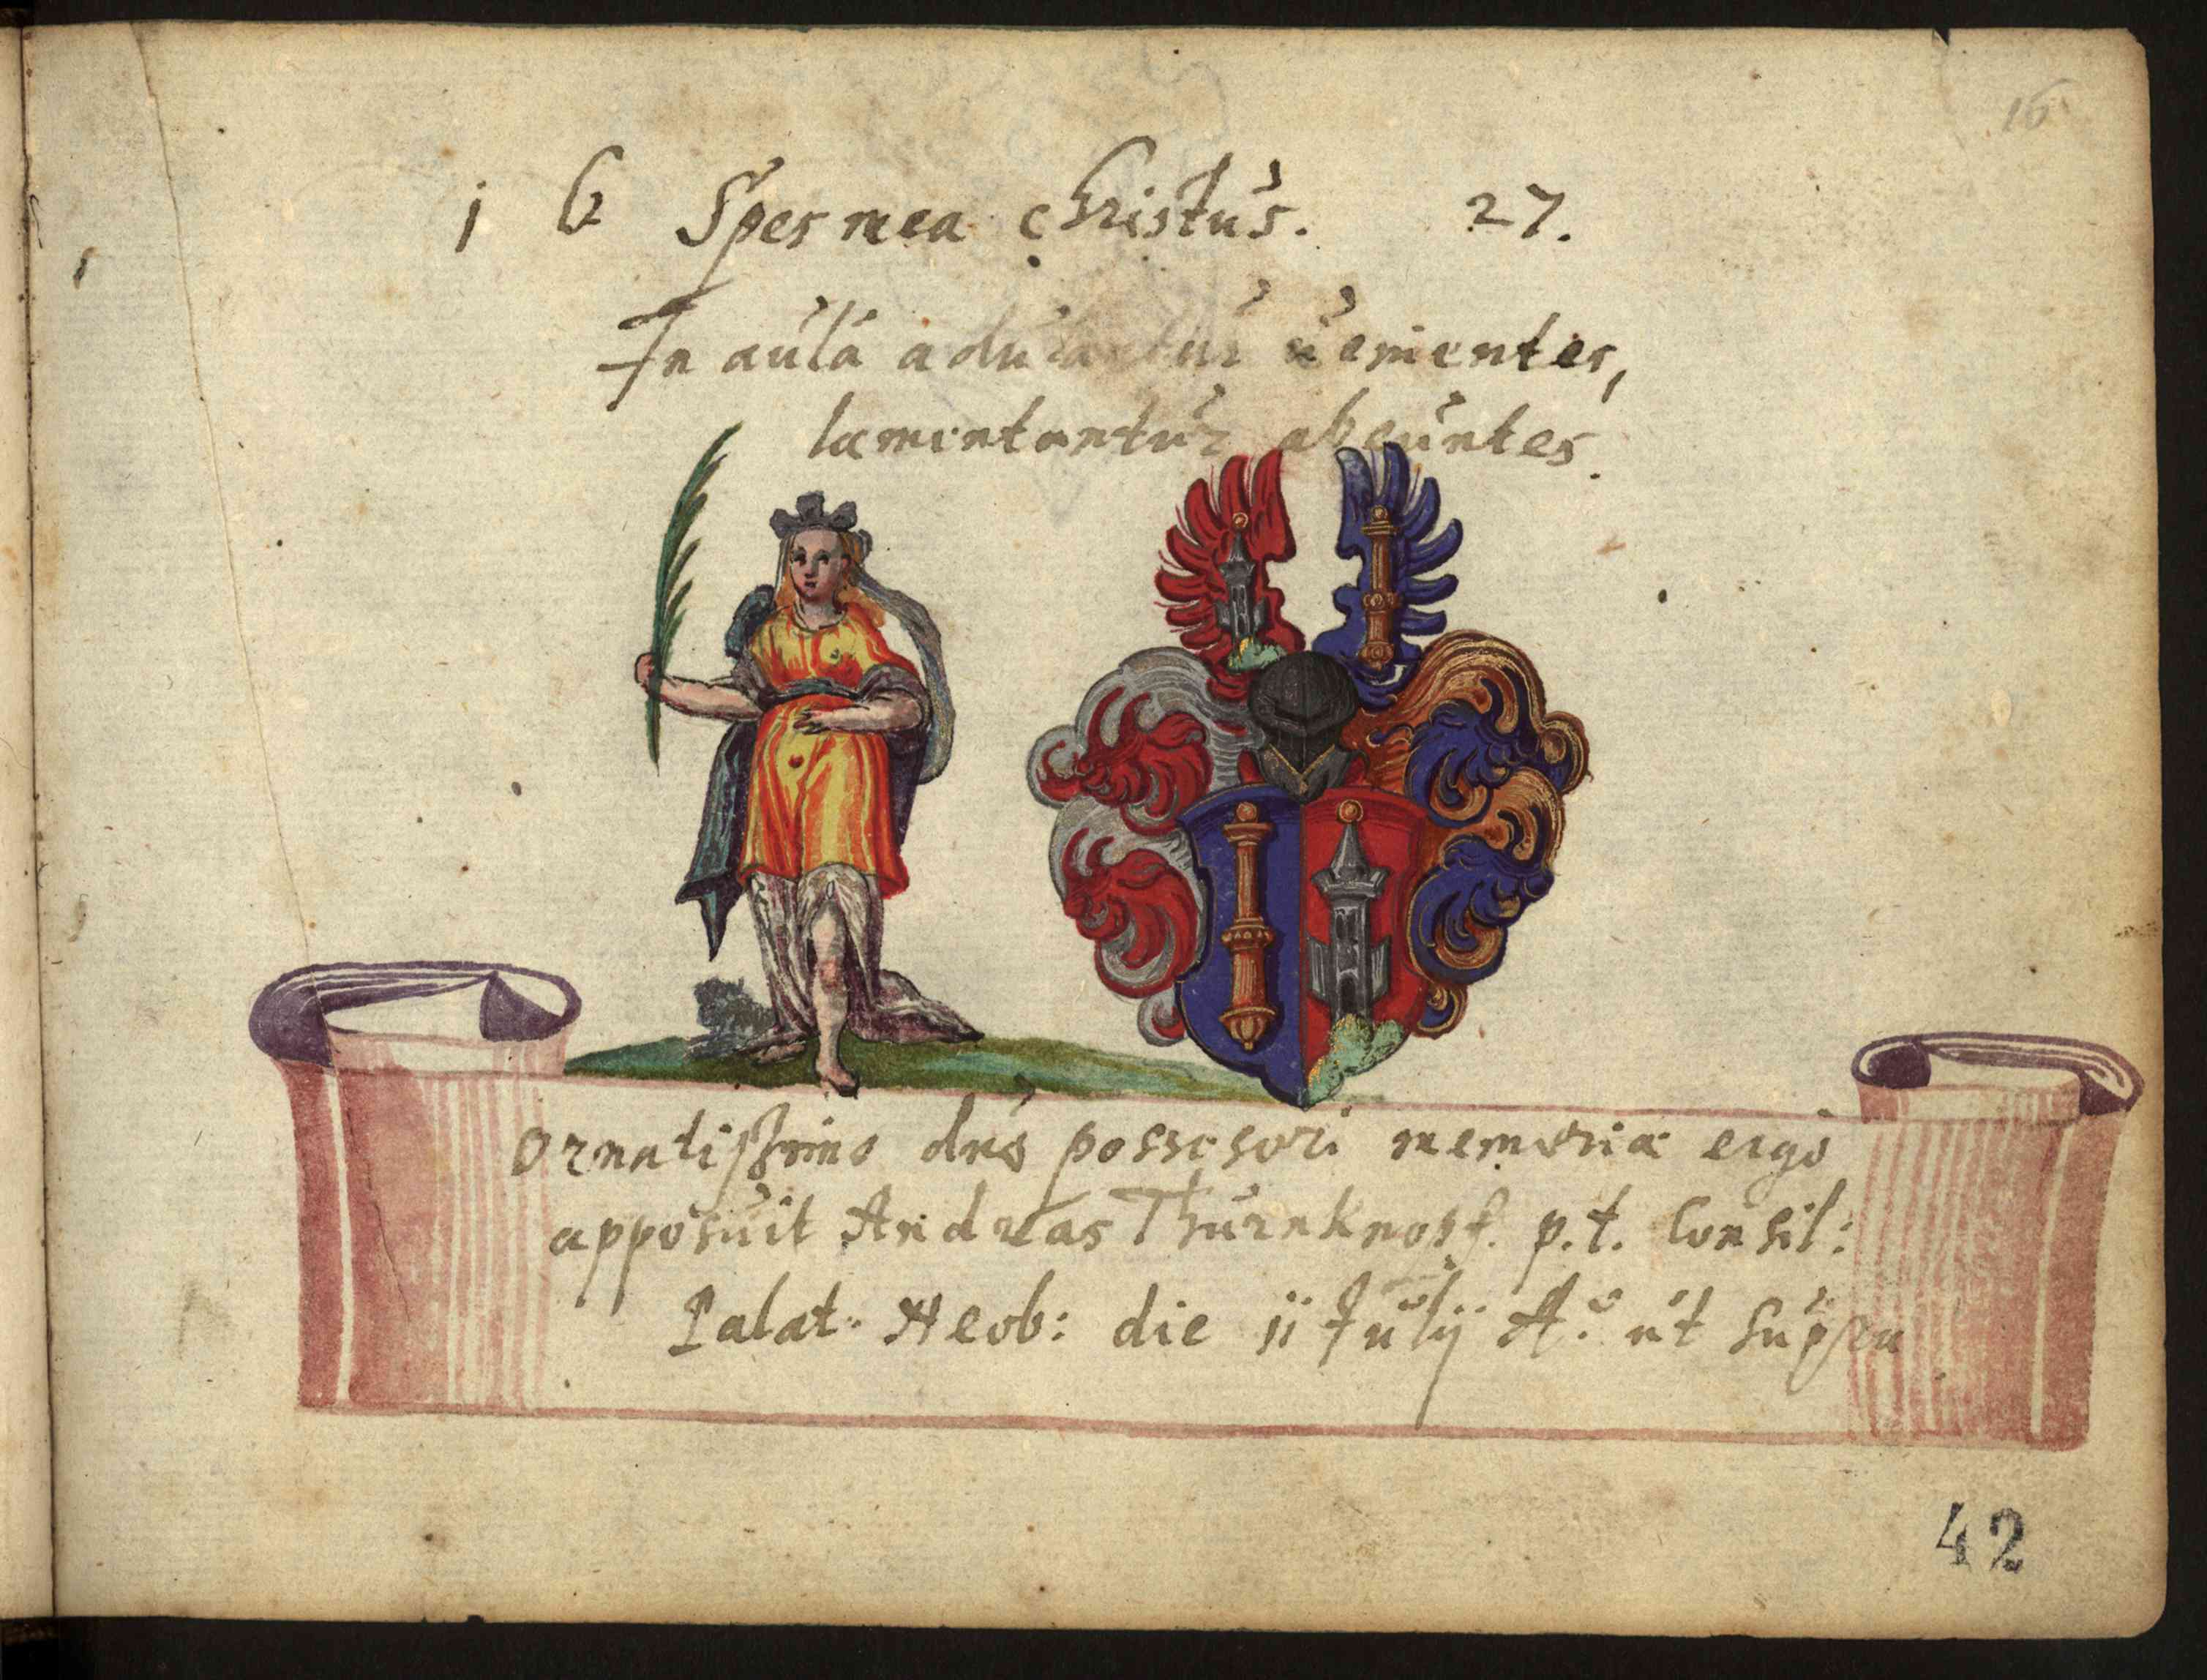 16
1 6 Spes mea Christus. 27.
In aula adulantur uenientes,
lamentantur abeuntes.
Ornatissimo dno possessori memoriæ ergo
apposuit Andreas Thurnknopf. p.t. Consil:
Palat. Neob: die ii Julij A.o ut supra
42